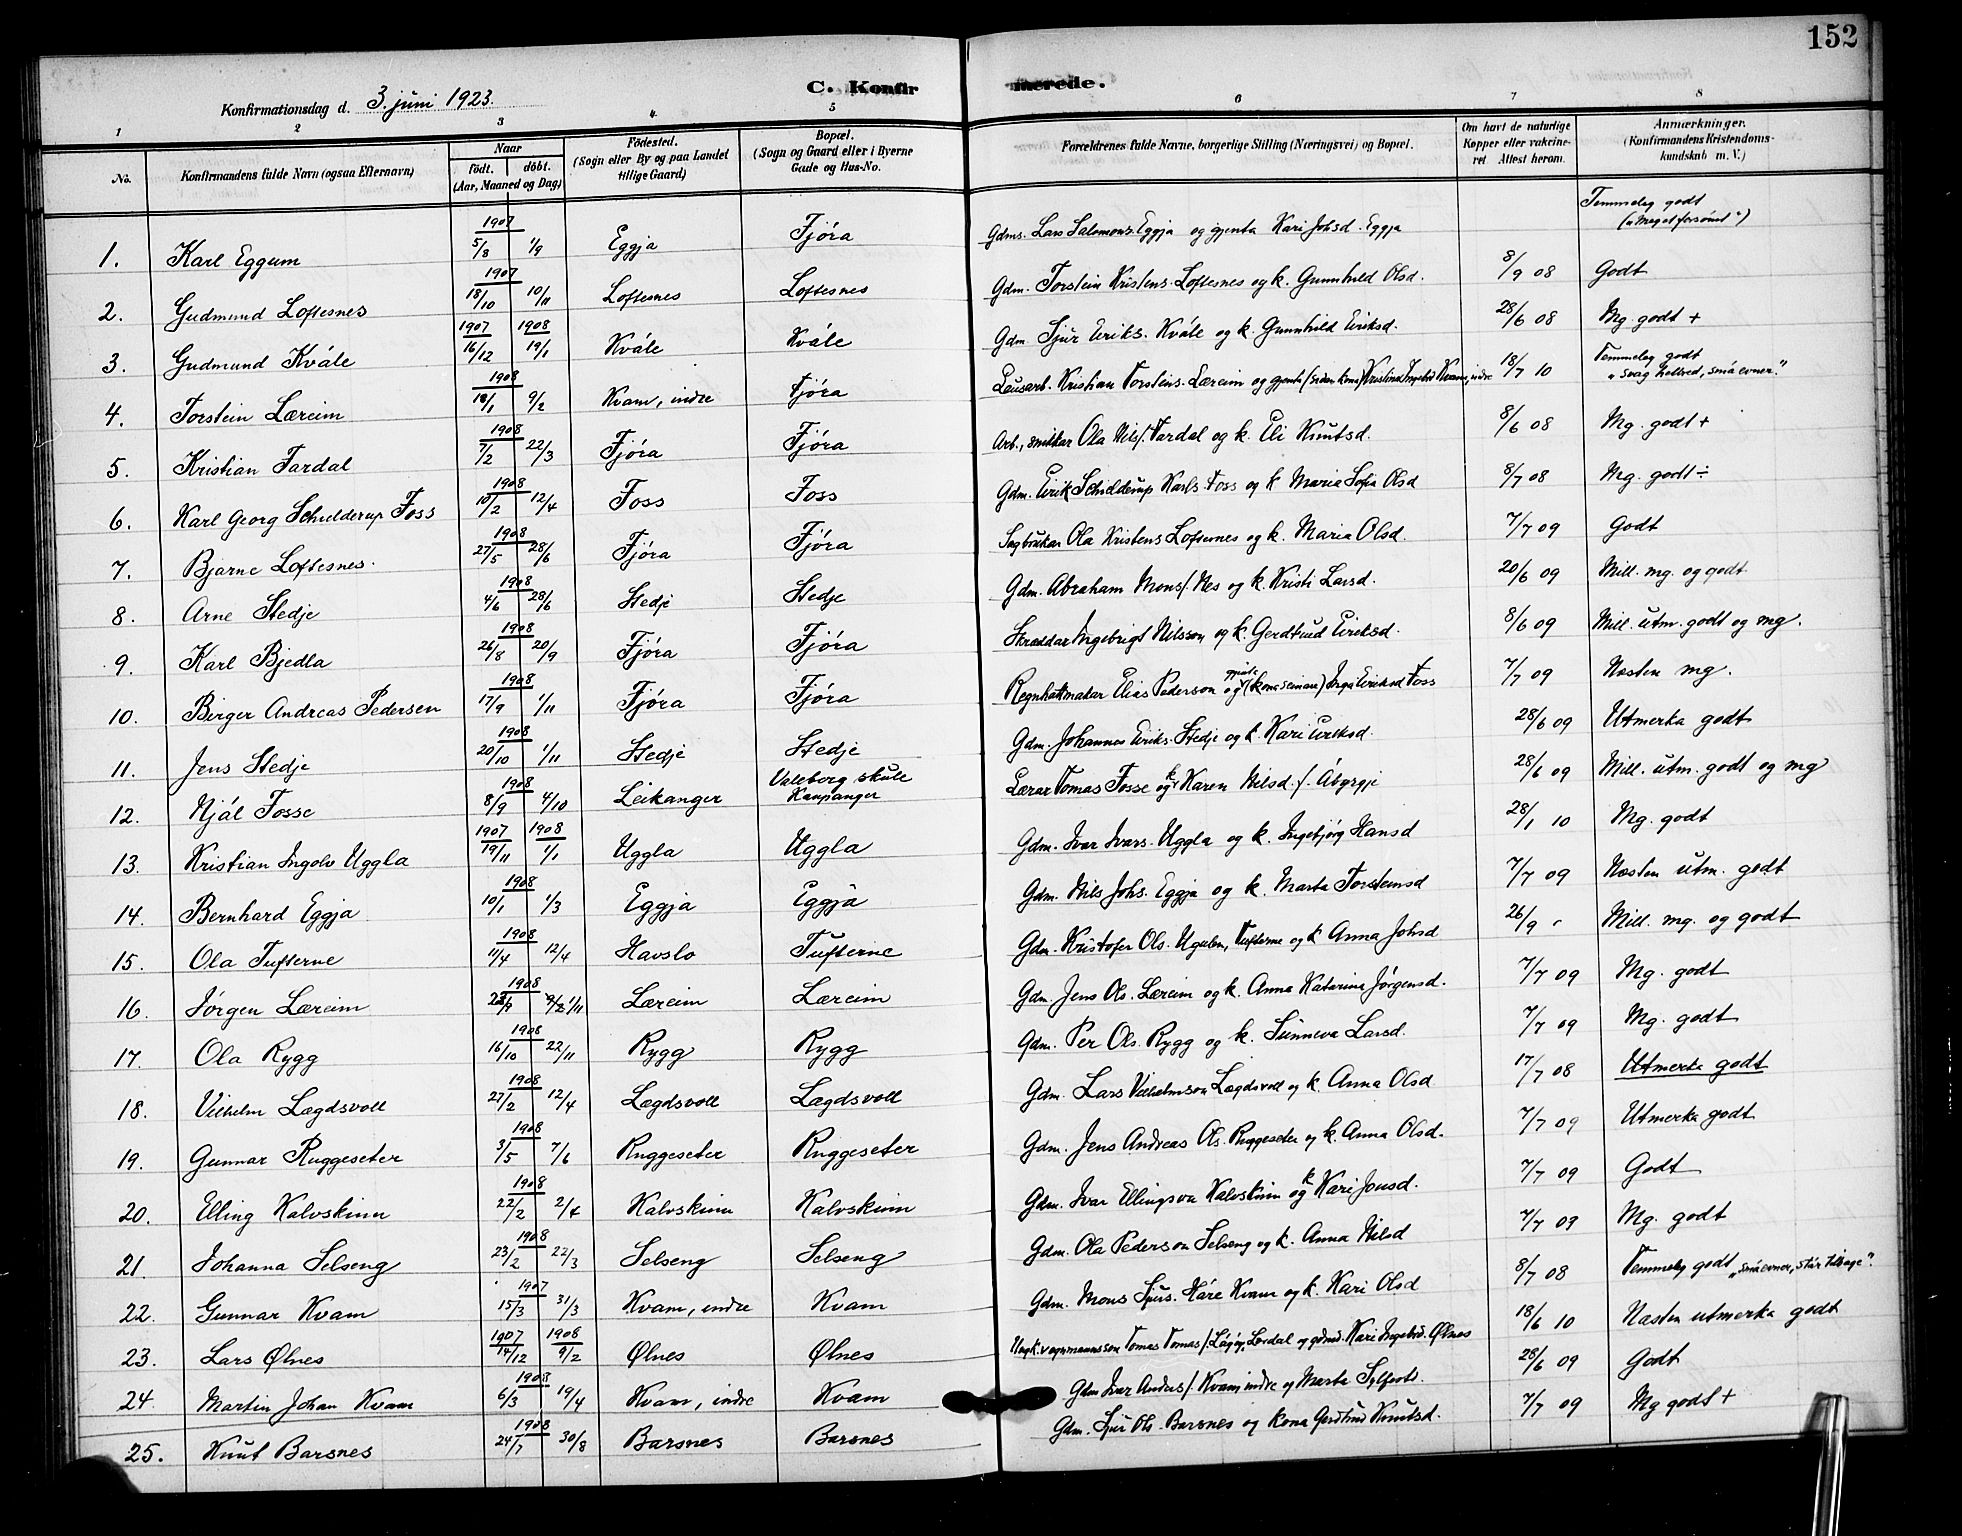 152
Konfirmationsdag d. 3. juni 1923.
C. Konfirmerede.
1 2 3 4. 5 6 7 8
No.
Konfirmandens fulde Navn (ogsaa Efternavn)
Naar
födt. döbt.
(Aar, Maaned og Dag)
Födested.
(Sogn eller By og paa Landet
tillige Gaard)
Bopæl.
(Sogn og Gaard eller i Byerne
Gade og Hus-No.
Forældrenes fulde Navne, borgerlige Stilling (Næringsvei) og Bopæl.
Om havt de naturlige
Kopper eller vakcine-
ret Attest herom.
Anmærkninger.
(Konfirmandens Kristendoms-
kundskab m. V.)
1. Karl Eggum 1907 5/8 1/9 Eggja Fjóra Gdms. Lars Salomons. Eggja og gjenta Kari Johsd. Eggja Temmeleg godt
("Meget forsömt")
2. Gudmund Loftesnes 1907 18/10 10/11 Loftesnes Loftesnes Gdm. Torstein Kristens. Loftesnes og k. Gunnhild Olsd. 8/9 08 Godt
3. Gudmund Kvåle 1907 16/12 1908 19/1 Kvåle Kvåle Gdm Sjur Eiriks. Kvåle og k. Gunnhild Eiriksd. 28/6 08 Mg. godt +
4. Torstein Læreim 1908 18/1 9/2 Kvam, indre Fjóra Lausarb. Kristian Torsteins. Læreim og gjenta (sidan kona) Kristina Ingebrd Kvam, indre 18/7 10 Temmeleg godt
"svag helbred, små evner."
5. Kristian Tardal 1908 7/2 22/3 Fjóra Fjóra Arb., smikkar Ola Nils/. Tardal og k. Eli Knutsd. 8/6 08 Mg. godt +
6. Karl Georg Schelderup Foss 1908 10/2 12/4 Foss Foss Gdm. Eirik Schelderup Karls. Foss og k Maria Sofia Olsd 8/7 08 Mg. godt ÷
7. Bjarne Loftesnes. 1908 27/5 28/6 Fjóra Fjóra Sagbrukar Ola Kristens Loftesnes og k. Maria Olsd. 7/7 09 Godt
8. Arne Stedje 1908 4/6 28/6 Stedje Stedje Gdm. Abraham Mons/. Nes og k. Kristi Larsd. 20/6 09 Mill. mg. og godt.
9. Karl Bjedla 1908 26/8 20/9 Fjóra Fjóra Skræddar Ingebrigt Nilsson og k. Gerdtrud Eiriksd. 8/6 09 Mill. utm. godt og mg.
10. Birger Andreas Pedersen 1908 17/9 1/11 Fjóra Fjóra Regnhattmakar Elias Pederson og gjenta (kona seinare) Inga Eiriksd Foss 7/7 09 Næsten mg.
11. Jens Stedje 1908 20/10 1/11 Stedje Stedje Gdm. Johannes Eiriks. Stedje og k. Kari Eiriksd. 28/6 09 Utmerka godt
12. Njål Fosse 1908 8/9 4/10 Leikanger Valeborg skule
Kaupanger Lærar Tomas Fosse og k Karen Nilsd. f. Åbyrgje 28/6 09 Mill. utm. godt og mg
13. Kristian Ingolv Uggla 1907 19/11 1908 1/1 Uggla Uggla Gdm. Ivar Ivars. Uggla og k. Ingebjørg Hansd 28/1 10 Mg. godt
14. Bernhard Eggja 1908 10/1 1/3 Eggja Eggja Gdm. Nils Johs. Eggja og k. Marta Torsteinsd 7/7 09 Næsten utm. godt
15. Ola Tufterne 1908 11/4 12/4 Havslo Tufterne Gdm. Kristofer Ols. Ugulen, Tufterne og k Anna Johsd 26/9 Mill. mg. og godt
16. Jørgen Læreim 1908 1/11 Læreim Læreim Gdm. Jens Ols. Læreim og k. Anna Katarina Jørgensd. 7/7 09 Mg. godt
17. Ola Rygg 1908 16/10 22/11 Rygg Rygg Gdm. Per Ols. Rygg og k. Sünneva Larsd. 7/7 09 Mg. godt
18. Vilhelm Lægdsvoll 1908 27/2 12/4 Lægdsvoll Lægdsvoll Gdm. Lars Vilhelmson Lægdsvoll og k. Anna Olsd 17/7 08 Utmerka godt
19. Gunnar Ruggeseter 1908 3/5 7/6 Ruggeseter Ruggeseter Gdm. Jens Andreas Ols. Ruggeseter og k. Anna Olsd. 7/7 09 Utmerka godt
20. Elling Kalvskinn 1908 22/2 2/4 Kalvskinn Kalvskinn Gdm. Ivar Ellingson Kalvskinn og k Kari Jonsd. 7/7 09 Godt
21. Johanna Selseng 1908 23/2 22/3 Selseng Selseng Gdm. Ola Pederson Selseng og k. Anna Nilsd 7/7 09 Mg. godt
22. Gunnar Kvam 1907 15/3 31/3 Kvam, indre Kvam Gdm. Mons Sjurs. Håre Kvam og k. Kari Olsd 8/7 08 Temmeleg godt "små evner, står tilbage".
23. Lars Ølnes 1907 14/12 1908 9/2 Ølnes Ølnes Ungk. vognmannsson Tomas Tomas/. Lærdal og gdmd. Kari Ingebrd. Ølnes 18/6 10 Næsten utmerka godt
24. Martin Johan Kvam 1908 6/3 19/4 Kvam, indre Kvam Gdm Ivar Anders/. Kvam indre og Marta Sylfestd. 28/6 09 Godt
25. Knut Barsnes 1908 24/7 30/8 Barsnes Barsnes Gdm. Sjur Ols. Barsnes og kona Gerdtrud Knutsd. 7/7 09 Mg godt +